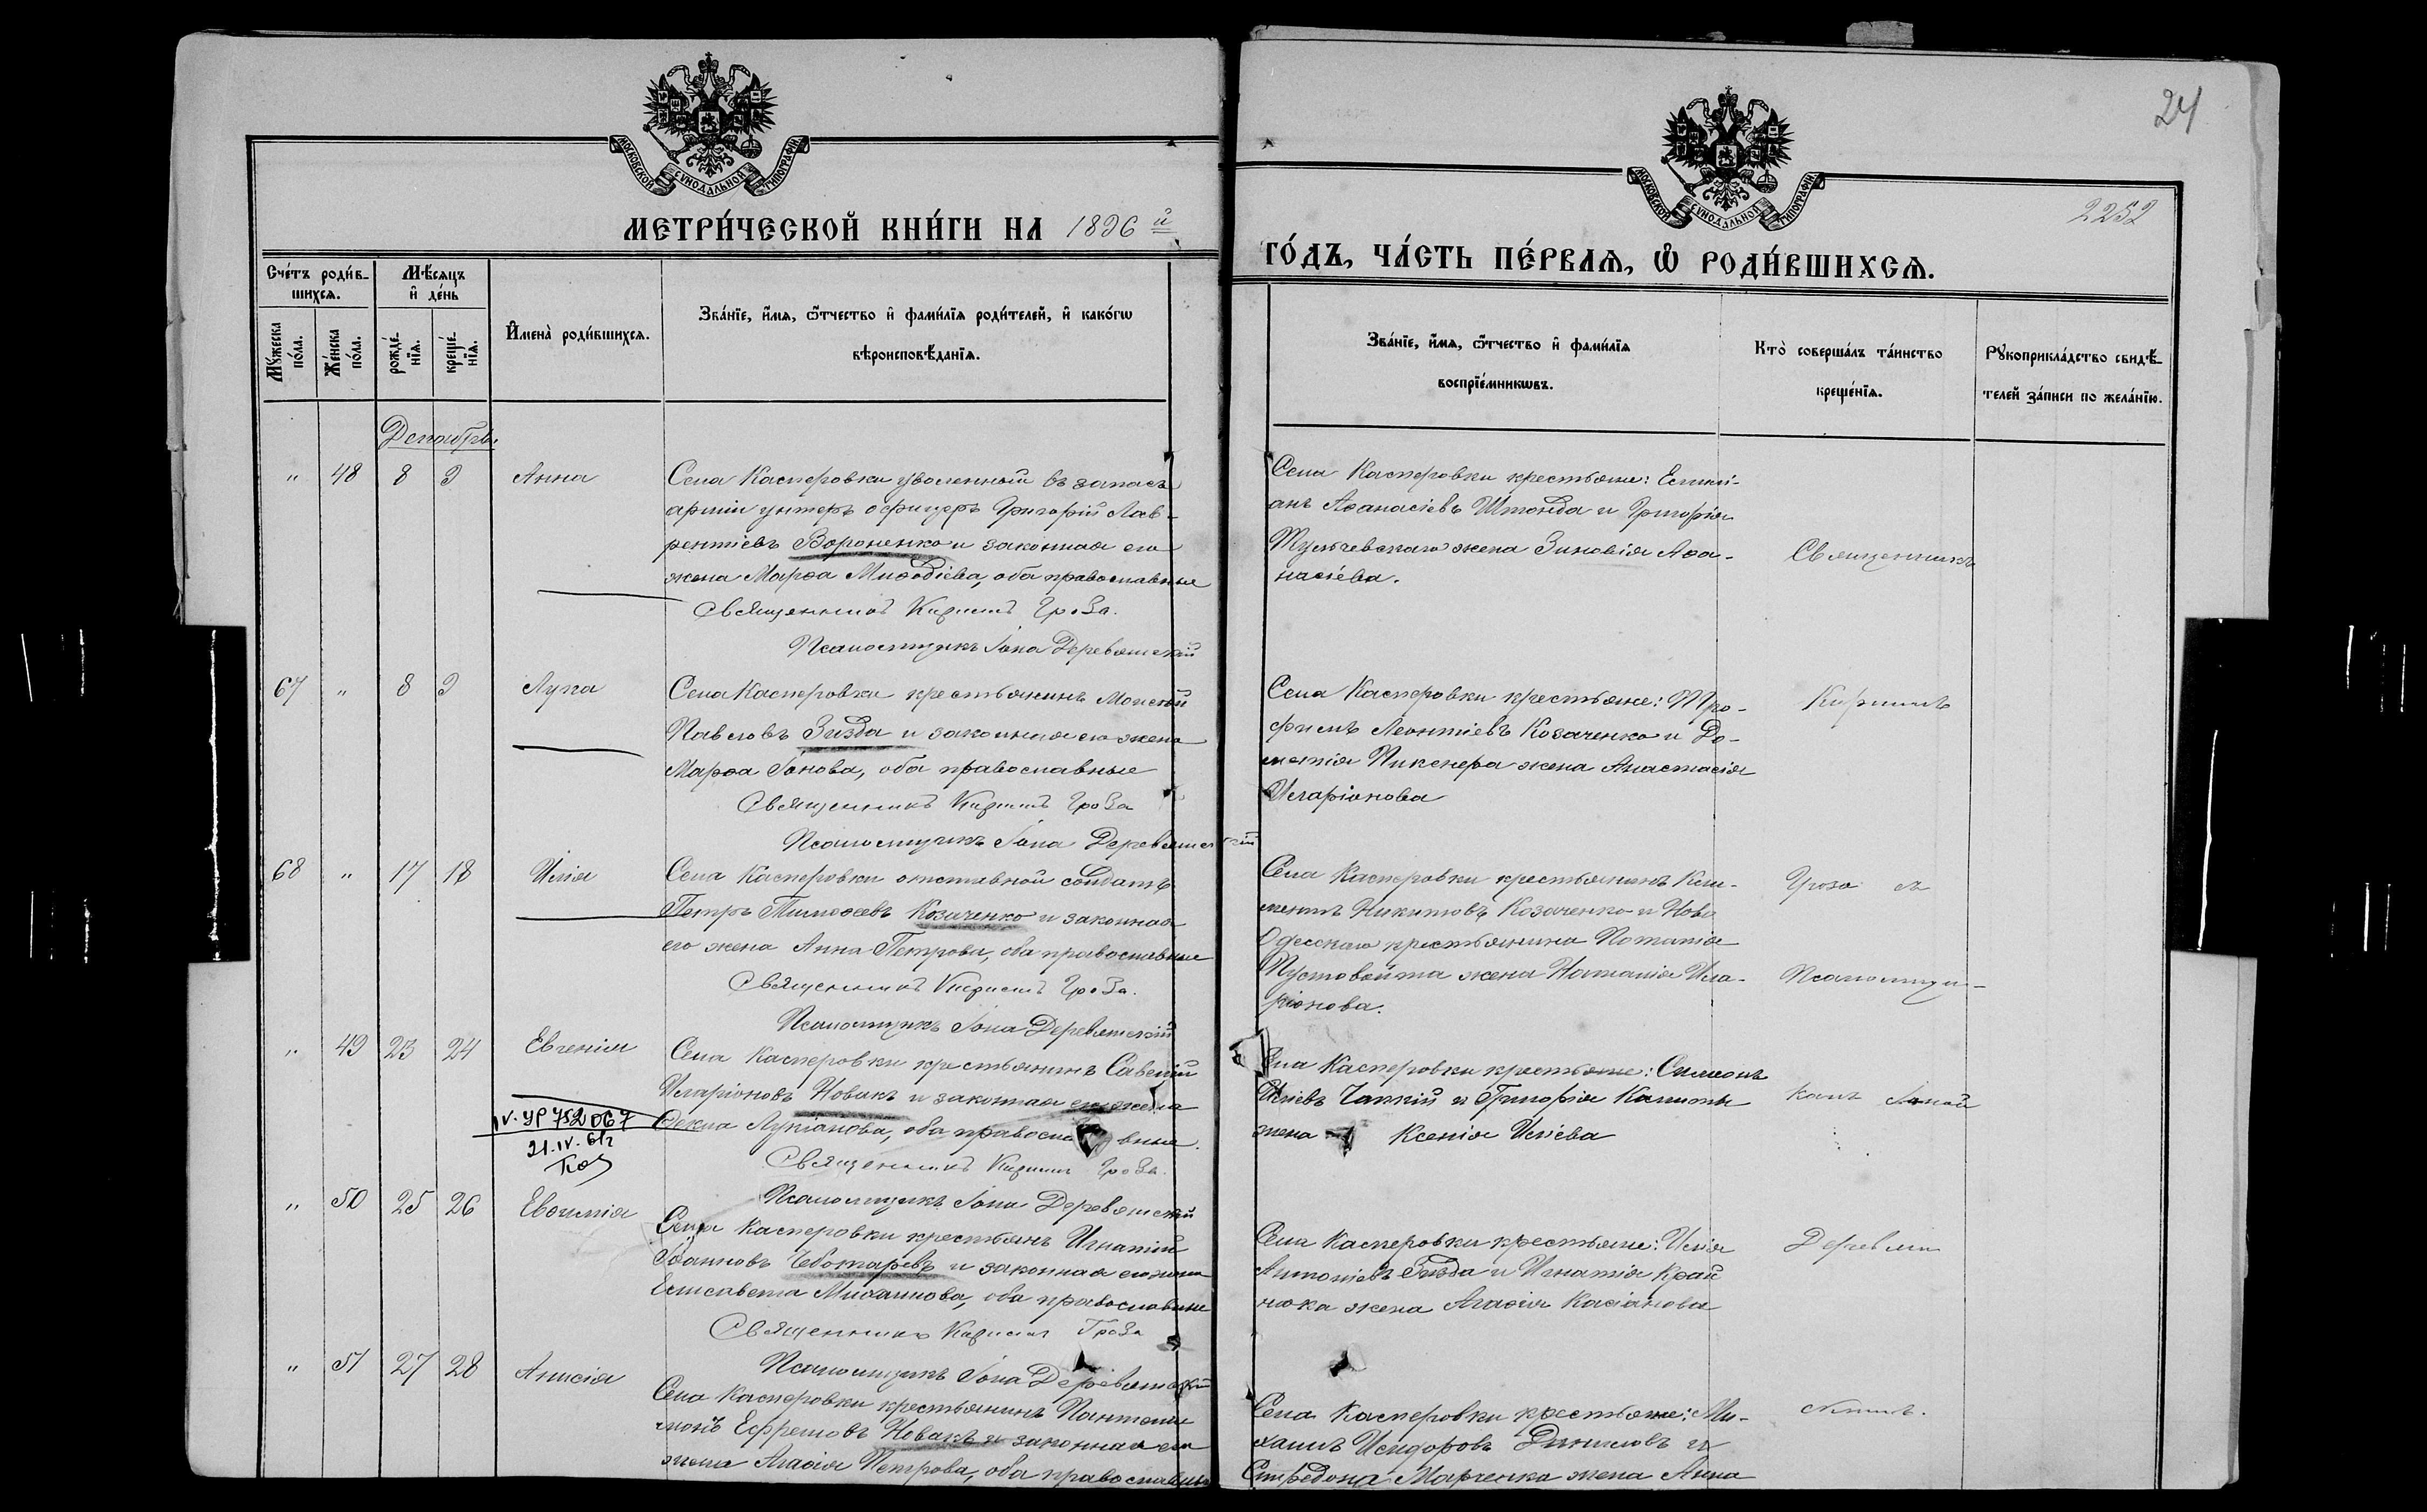 24
2252
МОСКОВСКОЙ СѴНОДАЛЬНОЙ ТИПОГРАФІИ
МОСКОВСКОЙ СѴНОДАЛЬНОЙ ТИПОГРАФІИ
МЕТРИ́ЧЕСКОЙ КНИ́ГИ НА 1896 й
ГО́ДЪ, ЧА́СТЬ ПЕ́РВАѦ, Ѽ РОДИ́ВШИХСѦ.
Сче́тъ роди́в-
шихсѧ.
Мꙋ́жеска по́ла.
Же́нска по́ла.
Мѣ́сѧцъ
и҆ де́нь
рожде́-
нїѧ.
креще́-
нїѧ.
И҆мена̀ роди́вшихсѧ.
Зва́нїе, и҆́мѧ, ѻ҆́тчество и҆ фами́лїѧ роди́телей, и҆ како́гѡ
вѣроисповѣ́данїѧ.
Зва́нїе, и҆́мѧ, ѻ҆́тчество и҆ фами́лїѧ
воспрїе́мникѡвъ.
Кто̀ соверша́лъ та́инство
креще́нїѧ.
Рꙋкоприкла́дство свидѣ́-
телей за́писи по жела́нїю.
Декабрь
" 48 8 9 Анна
Села Касперовки уволенный въ запасъ
арміи унтеръ офицеръ Григорій Лав-
рентіевъ Вороненко и законная его
жена Марѳа Миѳодіева, оба православные
Священникъ Кириллъ Гроза.
Псаломщикъ Іона Деревянскій
Села Касперовки крестьяне: Емилі-
анъ Аѳанасіевъ Штонда и Григорія
Тульчевскаго жена Зиновія Аѳа-
насіева.
Священникъ
67 " 8 9 Лука
Села Касперовки крестьянинъ Моисей
Павловъ Зизда и законная его жена
Марѳа Іонова, оба православные
Священникъ Кириллъ Гроза
Псаломщикъ Іона Деревянскій
Села Касперовки крестьяне: Тро-
фимъ Леонтіевъ Козаченко и До-
метія Пикснера жена Анастасія
Иларіонова
Кириллъ
68 " 17 18 Илія
Села Касперовки отставной солдатъ
Петръ Тимоѳеевъ Козаченко и законная
его жена Анна Петрова, оба православные
Священникъ Кириллъ Гроза.
Псаломщикъ Іона Деревянскій
Села Касперовки крестьянинъ Кли-
ментъ Никитовъ Козаченко и Ново
Одесскаго крестьянина Потапія
Пустовойта жена Наталія Ила-
ріонова.
Гроза съ
Псаломщи-
" 49 23 24 Евгенія
Села Касперовки крестьянинъ Савелій
Иларіоновъ Новакъ и законная его жена
Ѳекла Лукіанова, оба православные.
Священникъ Кириллъ Гроза.
Псаломщикъ Іона Деревянскій
IV-УР 752067
21.IV.61г
Села Касперовки крестьяне: Симеонъ
Иліевъ Чапкій и Григорія
жена Ксенія Иліева
комъ Іоной
" 50 25 26 Евѳимія
Села Касперовки крестьянъ Игнатій
Іоанновъ Чеботаревъ и законная его жена
Елисавета Михаилова, оба православные
Священникъ Кириллъ Гроза
Псаломщикъ Іона Деревянскій
Села Касперовки крестьяне: Илія
Антоніевъ Зизда и Игнатія Край
нюка жена Агаѳія Касіанова
Деревян
" 51 27 28 Анисія
Села Касперовки крестьянинъ Пантелеи
монъ Ефремовъ Новакъ и законная его
жена Агаѳія Петрова, оба православные
Села Касперовки крестьяне: Ми-
хаилъ Исидоровъ Даниловъ и
Спиридона Марченка жена Анна
скимъ.